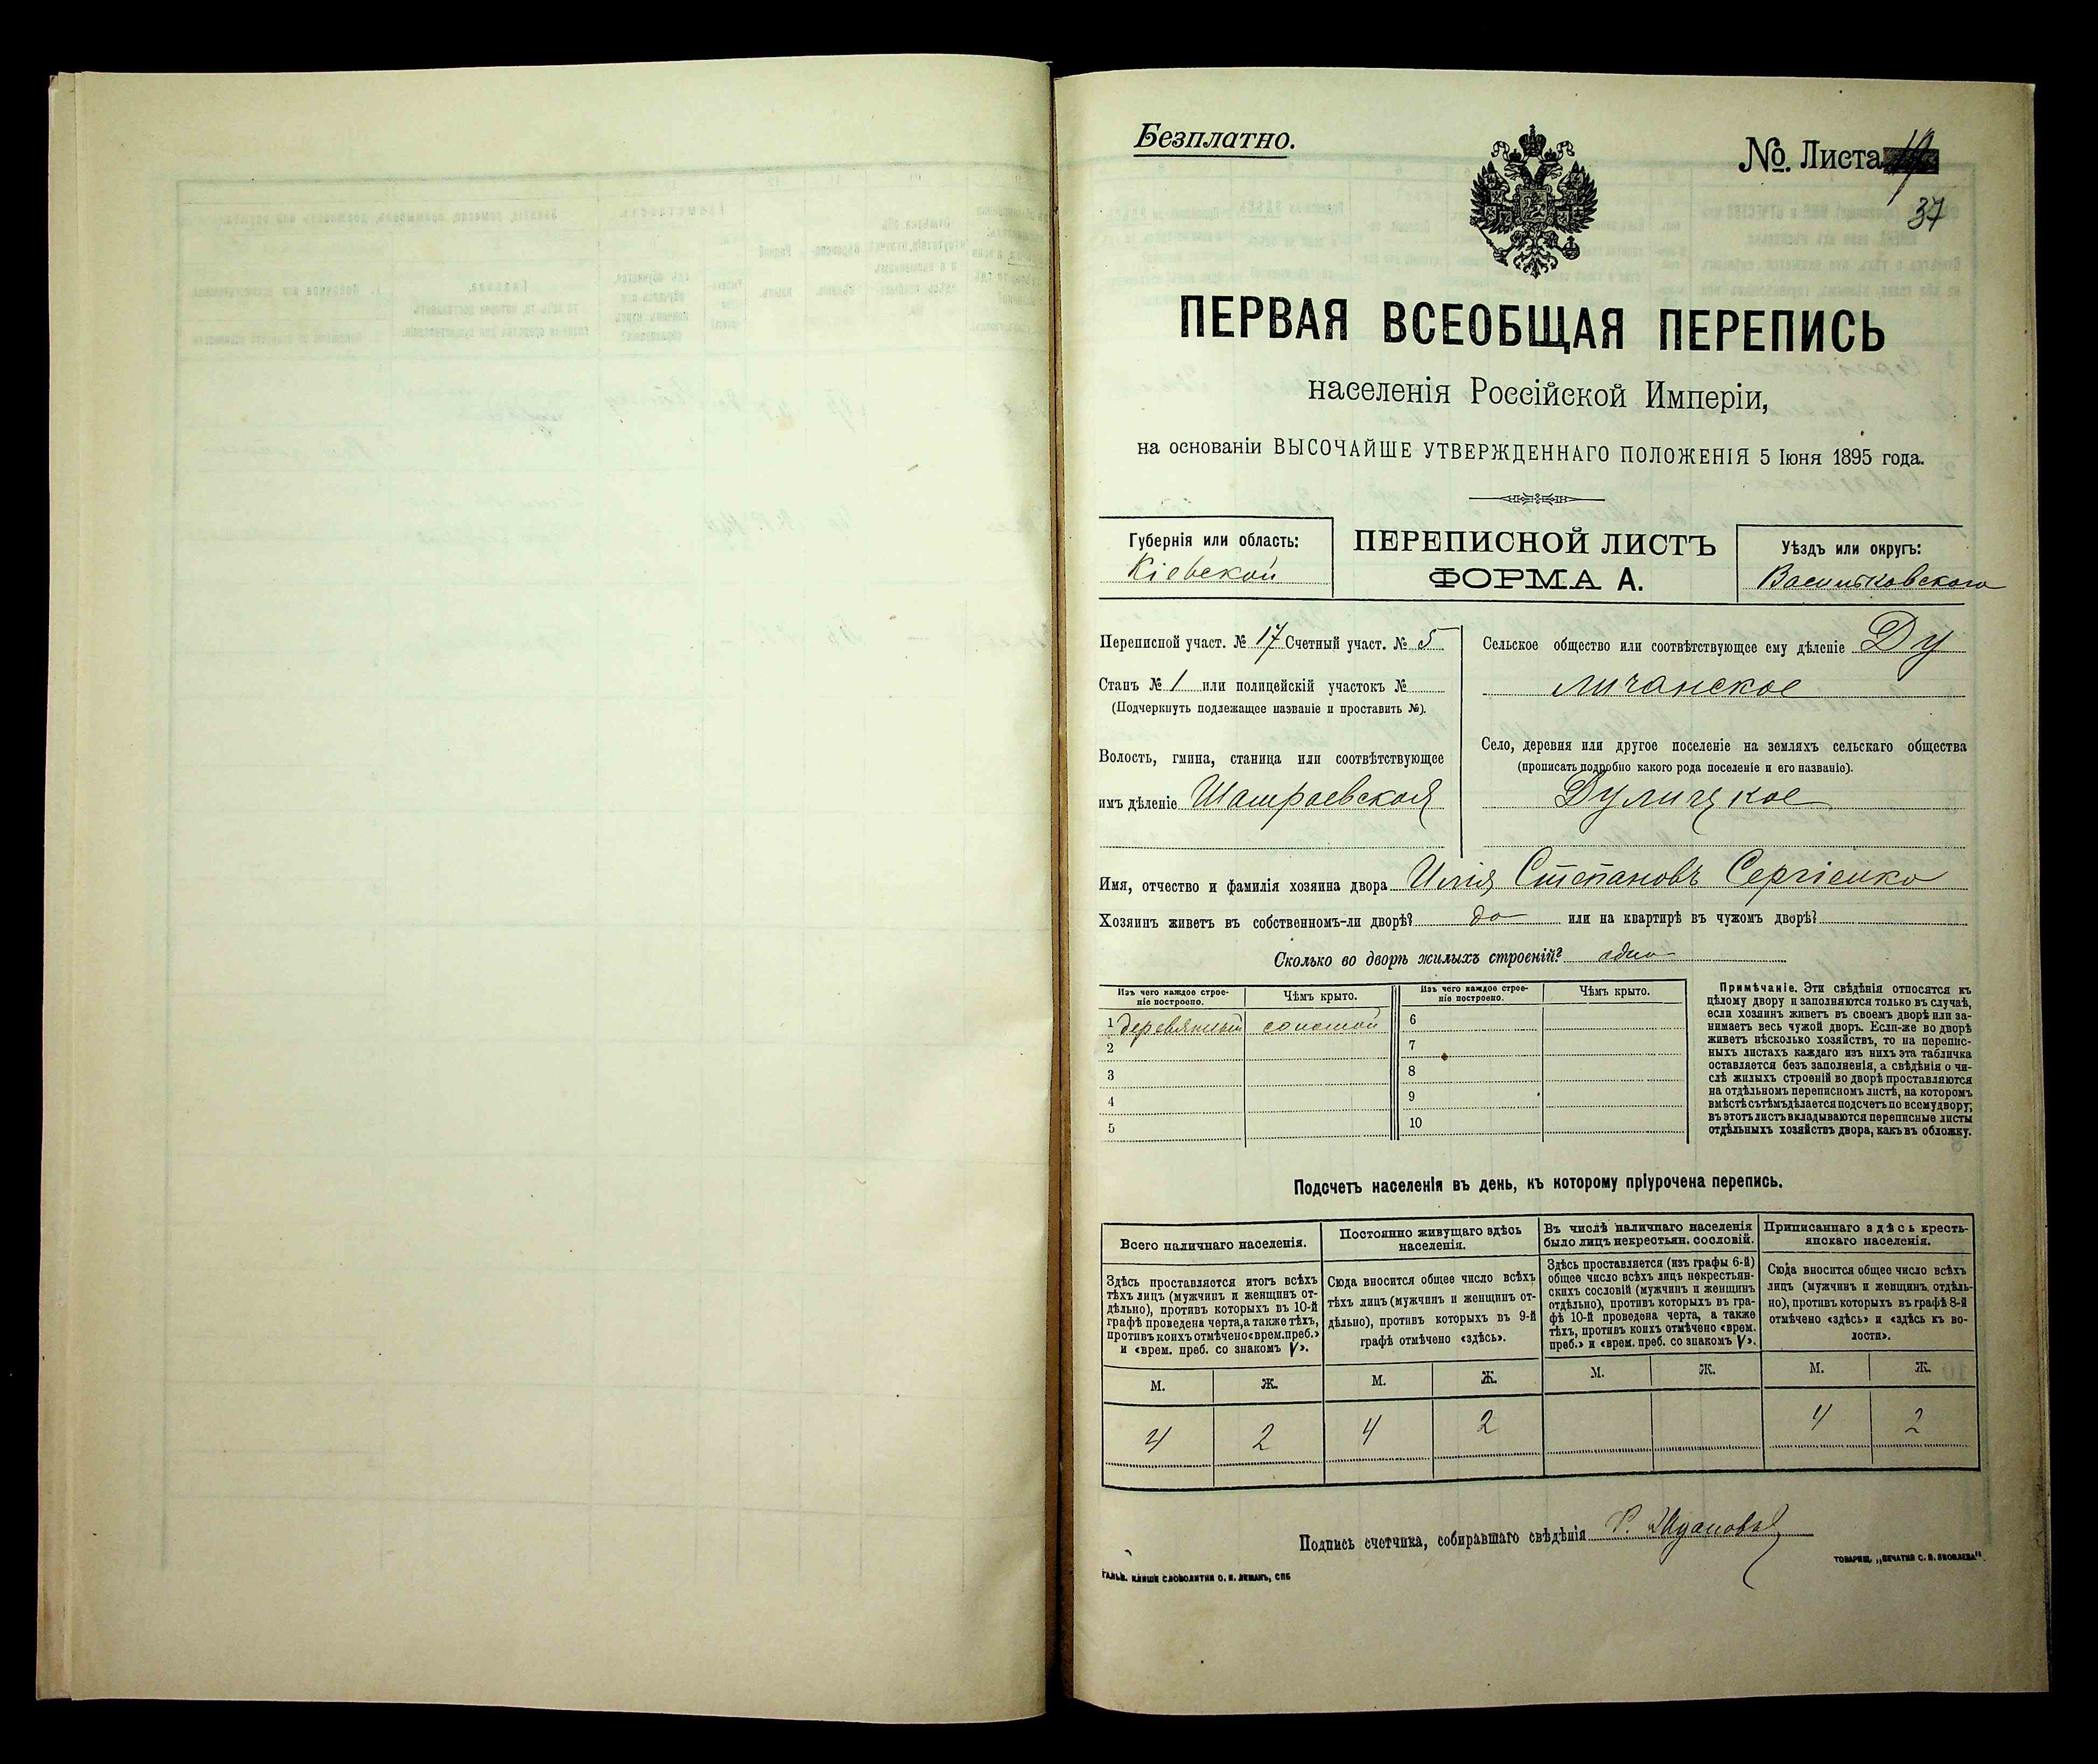 Безплатно.
№ Листа 19
37
ПЕРВАЯ ВСЕОБЩАЯ ПЕРЕПИСЬ
населенія Россійской Имперіи,
на основаніи ВЫСОЧАЙШЕ УТВЕРЖДЕННАГО ПОЛОЖЕНІЯ 5 Іюня 1895 года.
Губернія или область:
Кіевской
ПЕРЕПИСНОЙ ЛИСТЪ
ФОРМА А.
Уѣздъ или округъ:
Васильковскаго
Переписной участ. № 17 Счетный участ. № 5
Станъ № 1 или полицейскій участокъ №
(Подчеркнуть подлежащее названіе и проставить №).
Волость, гмина, станица или соотвѣтствующее
имъ дѣленіе Шамраевская
Сельское общество или соотвѣтствующее ему дѣленіе Ду
личанское
Село, деревня или другое поселеніе на земляхъ сельскаго общества
(прописать подробно какого рода поселеніе и его названіе).
Дулицкое
Имя, отчество и фамилія хозяина двора Илія Степановъ Сергіенко
Хозяинъ живетъ въ собственномъ-ли дворѣ? да или на квартирѣ въ чужомъ дворѣ?
Сколько во дворѣ жилыхъ строеній? одно
Изъ чего каждое строе-
ніе построено.
Чѣмъ крыто.
Изъ чего каждое строе-
ніе построено.
Чѣмъ крыто.
1 деревянный соломой 6
2 7
3 8
4 9
5 10
Примѣчаніе. Эти свѣдѣнія относятся къ
цѣлому двору и заполняются только въ случаѣ,
если хозяинъ живетъ въ своемъ дворѣ или за-
нимаетъ весь чужой дворъ. Если-же во дворѣ
живетъ нѣсколько хозяйствъ, то на перепис-
ныхъ листахъ каждаго изъ нихъ эта табличка
оставляется безъ заполненія, а свѣдѣнія о чи-
слѣ жилыхъ строеній во дворѣ проставляются
на отдѣльномъ переписномъ листѣ, на которомъ
вмѣстѣ съ тѣмъ дѣлается подсчетъ по всему двору;
въ этотъ листъ вкладываются переписные листы
отдѣльныхъ хозяйствъ двора, какъ въ обложку.
Подсчетъ населенія въ день, къ которому пріурочена перепись.
Всего наличнаго населенія.
Здѣсь проставляется итогъ всѣхъ
тѣхъ лицъ (мужчинъ и женщинъ от-
дѣльно), противъ которыхъ въ 10-й
графѣ проведена черта, а также тѣхъ,
противъ коихъ отмѣчено «врем. преб.»
и «врем. преб. со знакомъ V».
Постоянно живущаго здѣсь
населенія.
Сюда вносится общее число всѣхъ
тѣхъ лицъ (мужчинъ и женщинъ от-
дѣльно), противъ которыхъ въ 9-й
графѣ отмѣчено «здѣсь».
Въ числѣ наличнаго населенія
было лицъ некрестьян. сословій.
Здѣсь проставляется (изъ графы 6-й)
общее число всѣхъ лицъ некрестьян-
скихъ сословій (мужчинъ и женщинъ
отдѣльно), противъ которыхъ въ гра-
фѣ 10-й проведена черта, а также
тѣхъ, противъ коихъ отмѣчено «врем.
преб.» и «врем. преб. со знакомъ V».
Приписаннаго здѣсь кресть-
янскаго населенія.
Сюда вносится общее число всѣхъ
лицъ (мужчинъ и женщинъ отдѣль-
но), противъ которыхъ въ графѣ 8-й
отмѣчено «здѣсь» и «здѣсь къ во-
лости».
М. Ж. М. Ж. М. Ж. М. Ж.
4 2 4 2 4 2
Подпись счетчика, собиравшаго свѣдѣнія
ГАЛЬВ. КЛИШЕ СЛОВОЛИТНИ О. И. ЛЕМАНЪ, СПБ
ТОВАРИЩ. „ПЕЧАТНЯ С. П. ЯКОВЛЕВА".